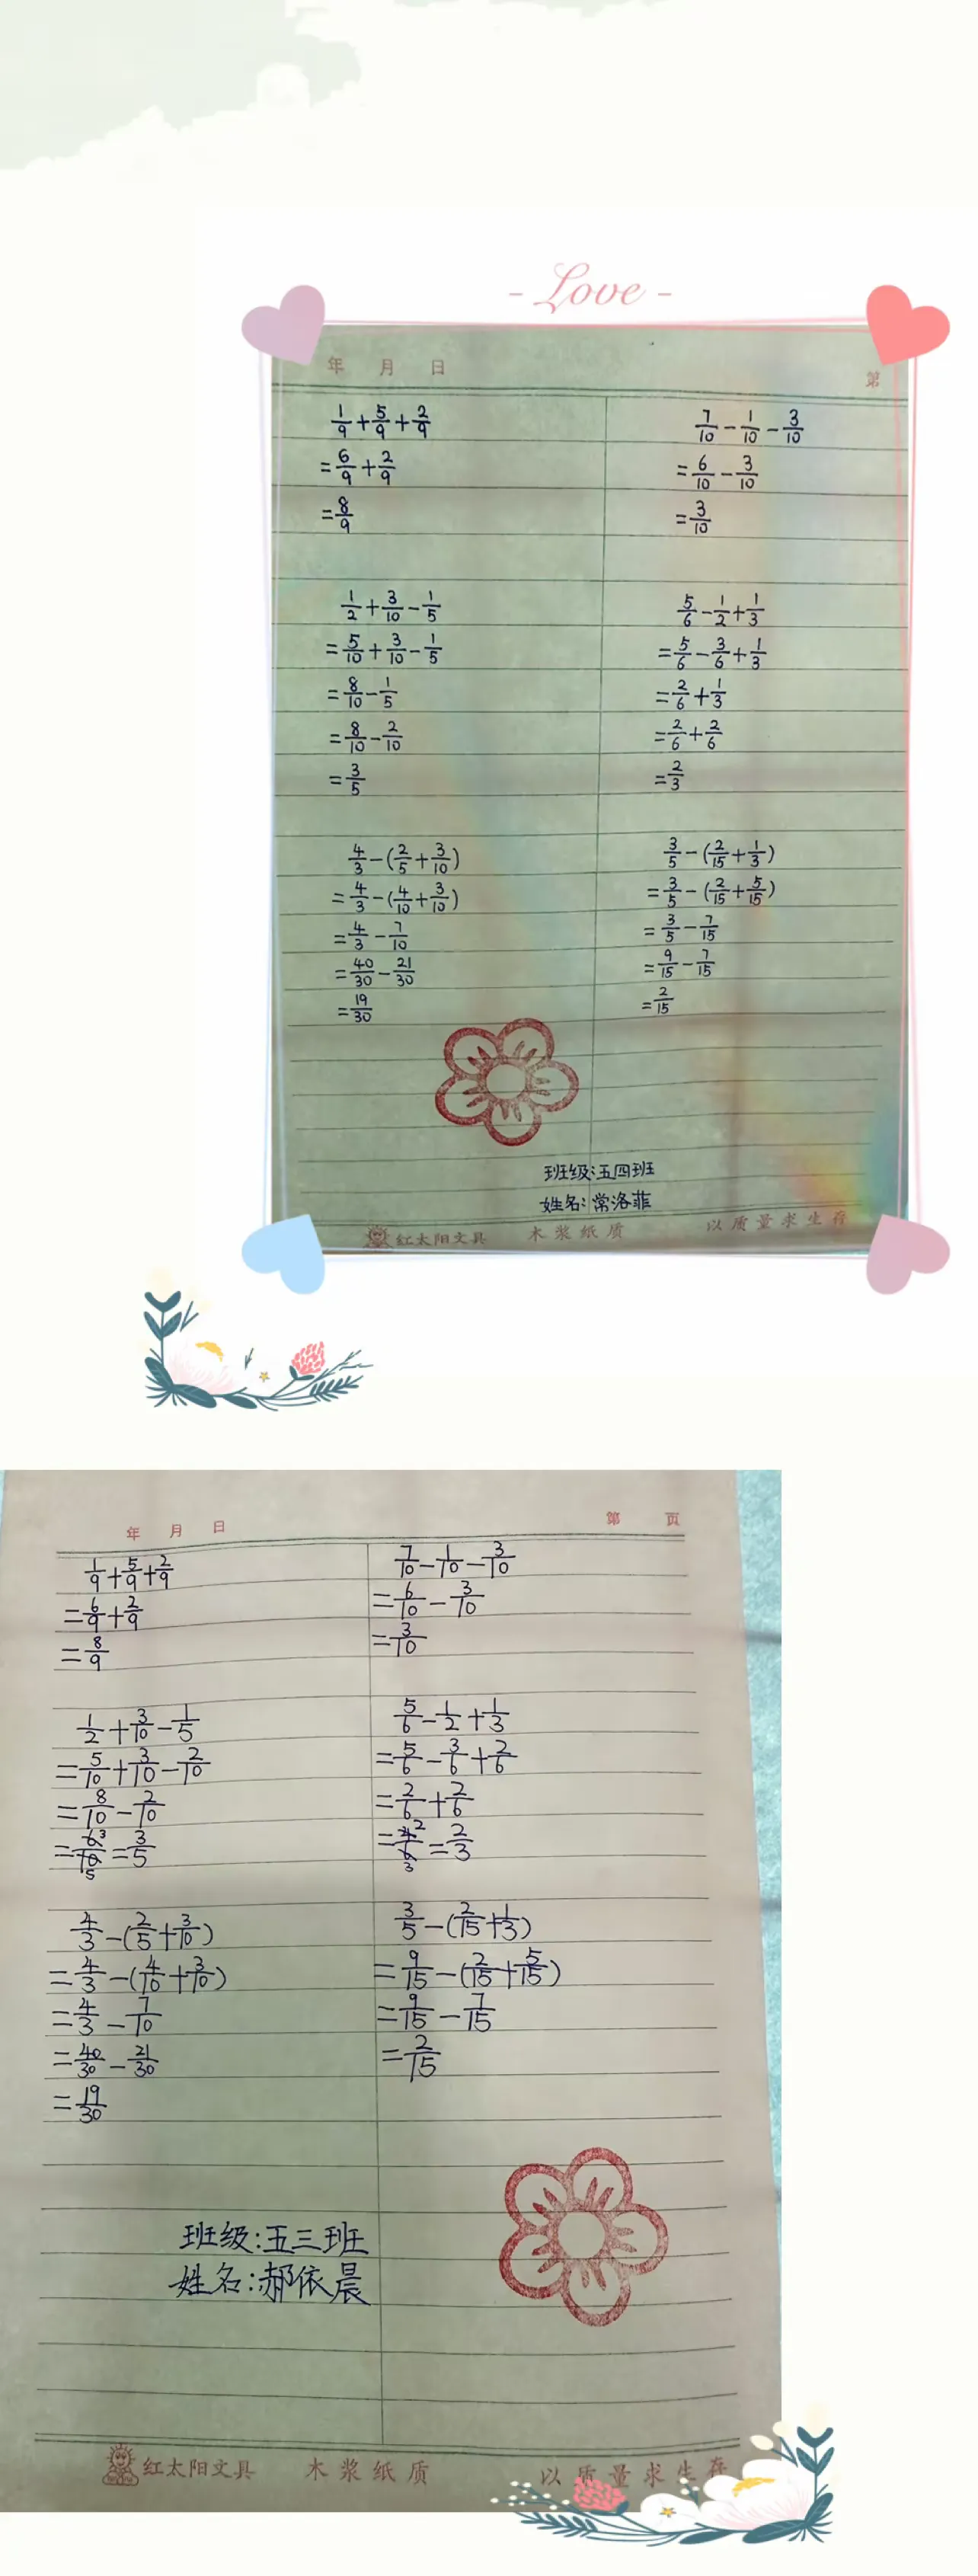 - Love -
年 月 日 第
1/9+5/9+2/9
=6/9+2/9
=8/9
7/10-1/10-3/10
=6/10-3/10
=3/10
1/2+3/10-1/5
=5/10+3/10-1/5
=8/10-1/5
=8/10-2/10
=3/5
5/6-1/2+1/3
=5/6-3/6+1/3
=2/6+1/3
=2/6+2/6
=2/3
4/3-(2/5+3/10)
=4/3-(4/10+3/10)
=4/3-7/10
=40/30-21/30
=19/30
3/5-(2/15+1/3)
=3/5-(2/15+5/15)
=3/5-7/15
=9/15-7/15
=2/15
班级:五四班
姓名:常洛菲
红太阳文具 木浆纸质 以质量求生存
年 月 日 第 页
1/9+5/9+2/9
=6/9+2/9
=8/9
7/10-1/10-3/10
=6/10-3/10
=3/10
1/2+3/10-1/5
=5/10+3/10-2/10
=8/10-2/10
=6/10=3/5
5/6-1/2+1/3
=5/6-3/6+2/6
=2/6+2/6
=4/6=2/3
4/3-(2/5+3/10)
=4/3-(4/10+3/10)
=4/3-7/10
=40/30-21/30
=19/30
3/5-(2/15+1/3)
=9/15-(2/15+5/15)
=9/15-7/15
=2/15
班级:五三班
姓名:郝依晨
红太阳文具 木浆纸质 以质量求生存